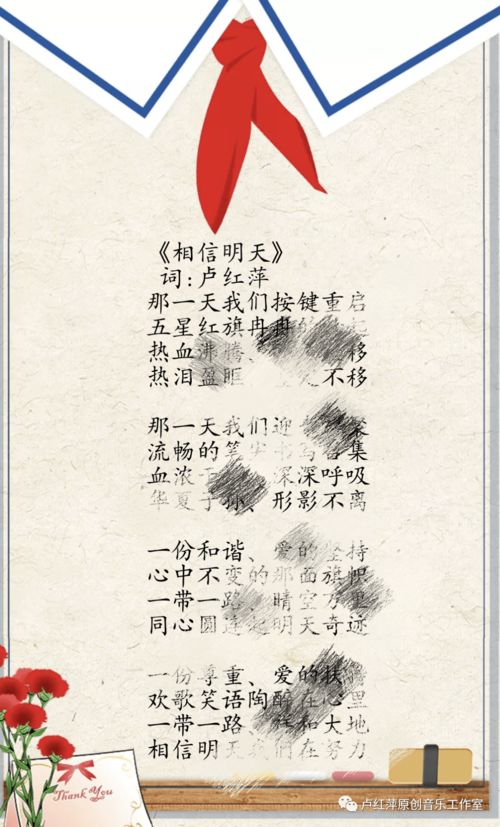 《相信明天》
词:卢红萍
那一天我们按键重启
五星红旗冉冉
热血沸腾、移
热泪盈眶 不移
那一天我们迎
流畅的笔 集
血浓于 深深呼吸
华夏子孙、形影不离
一份和谐、爱的坚持
心中不变的那面旗帜
一带一路 晴空万里
同心圆连起明天奇迹
一份尊重、爱的扶
欢歌笑语陶醉在心里
一带一路 祥和大地
相信明天我们在努力
Thank You
卢红萍原创音乐工作室